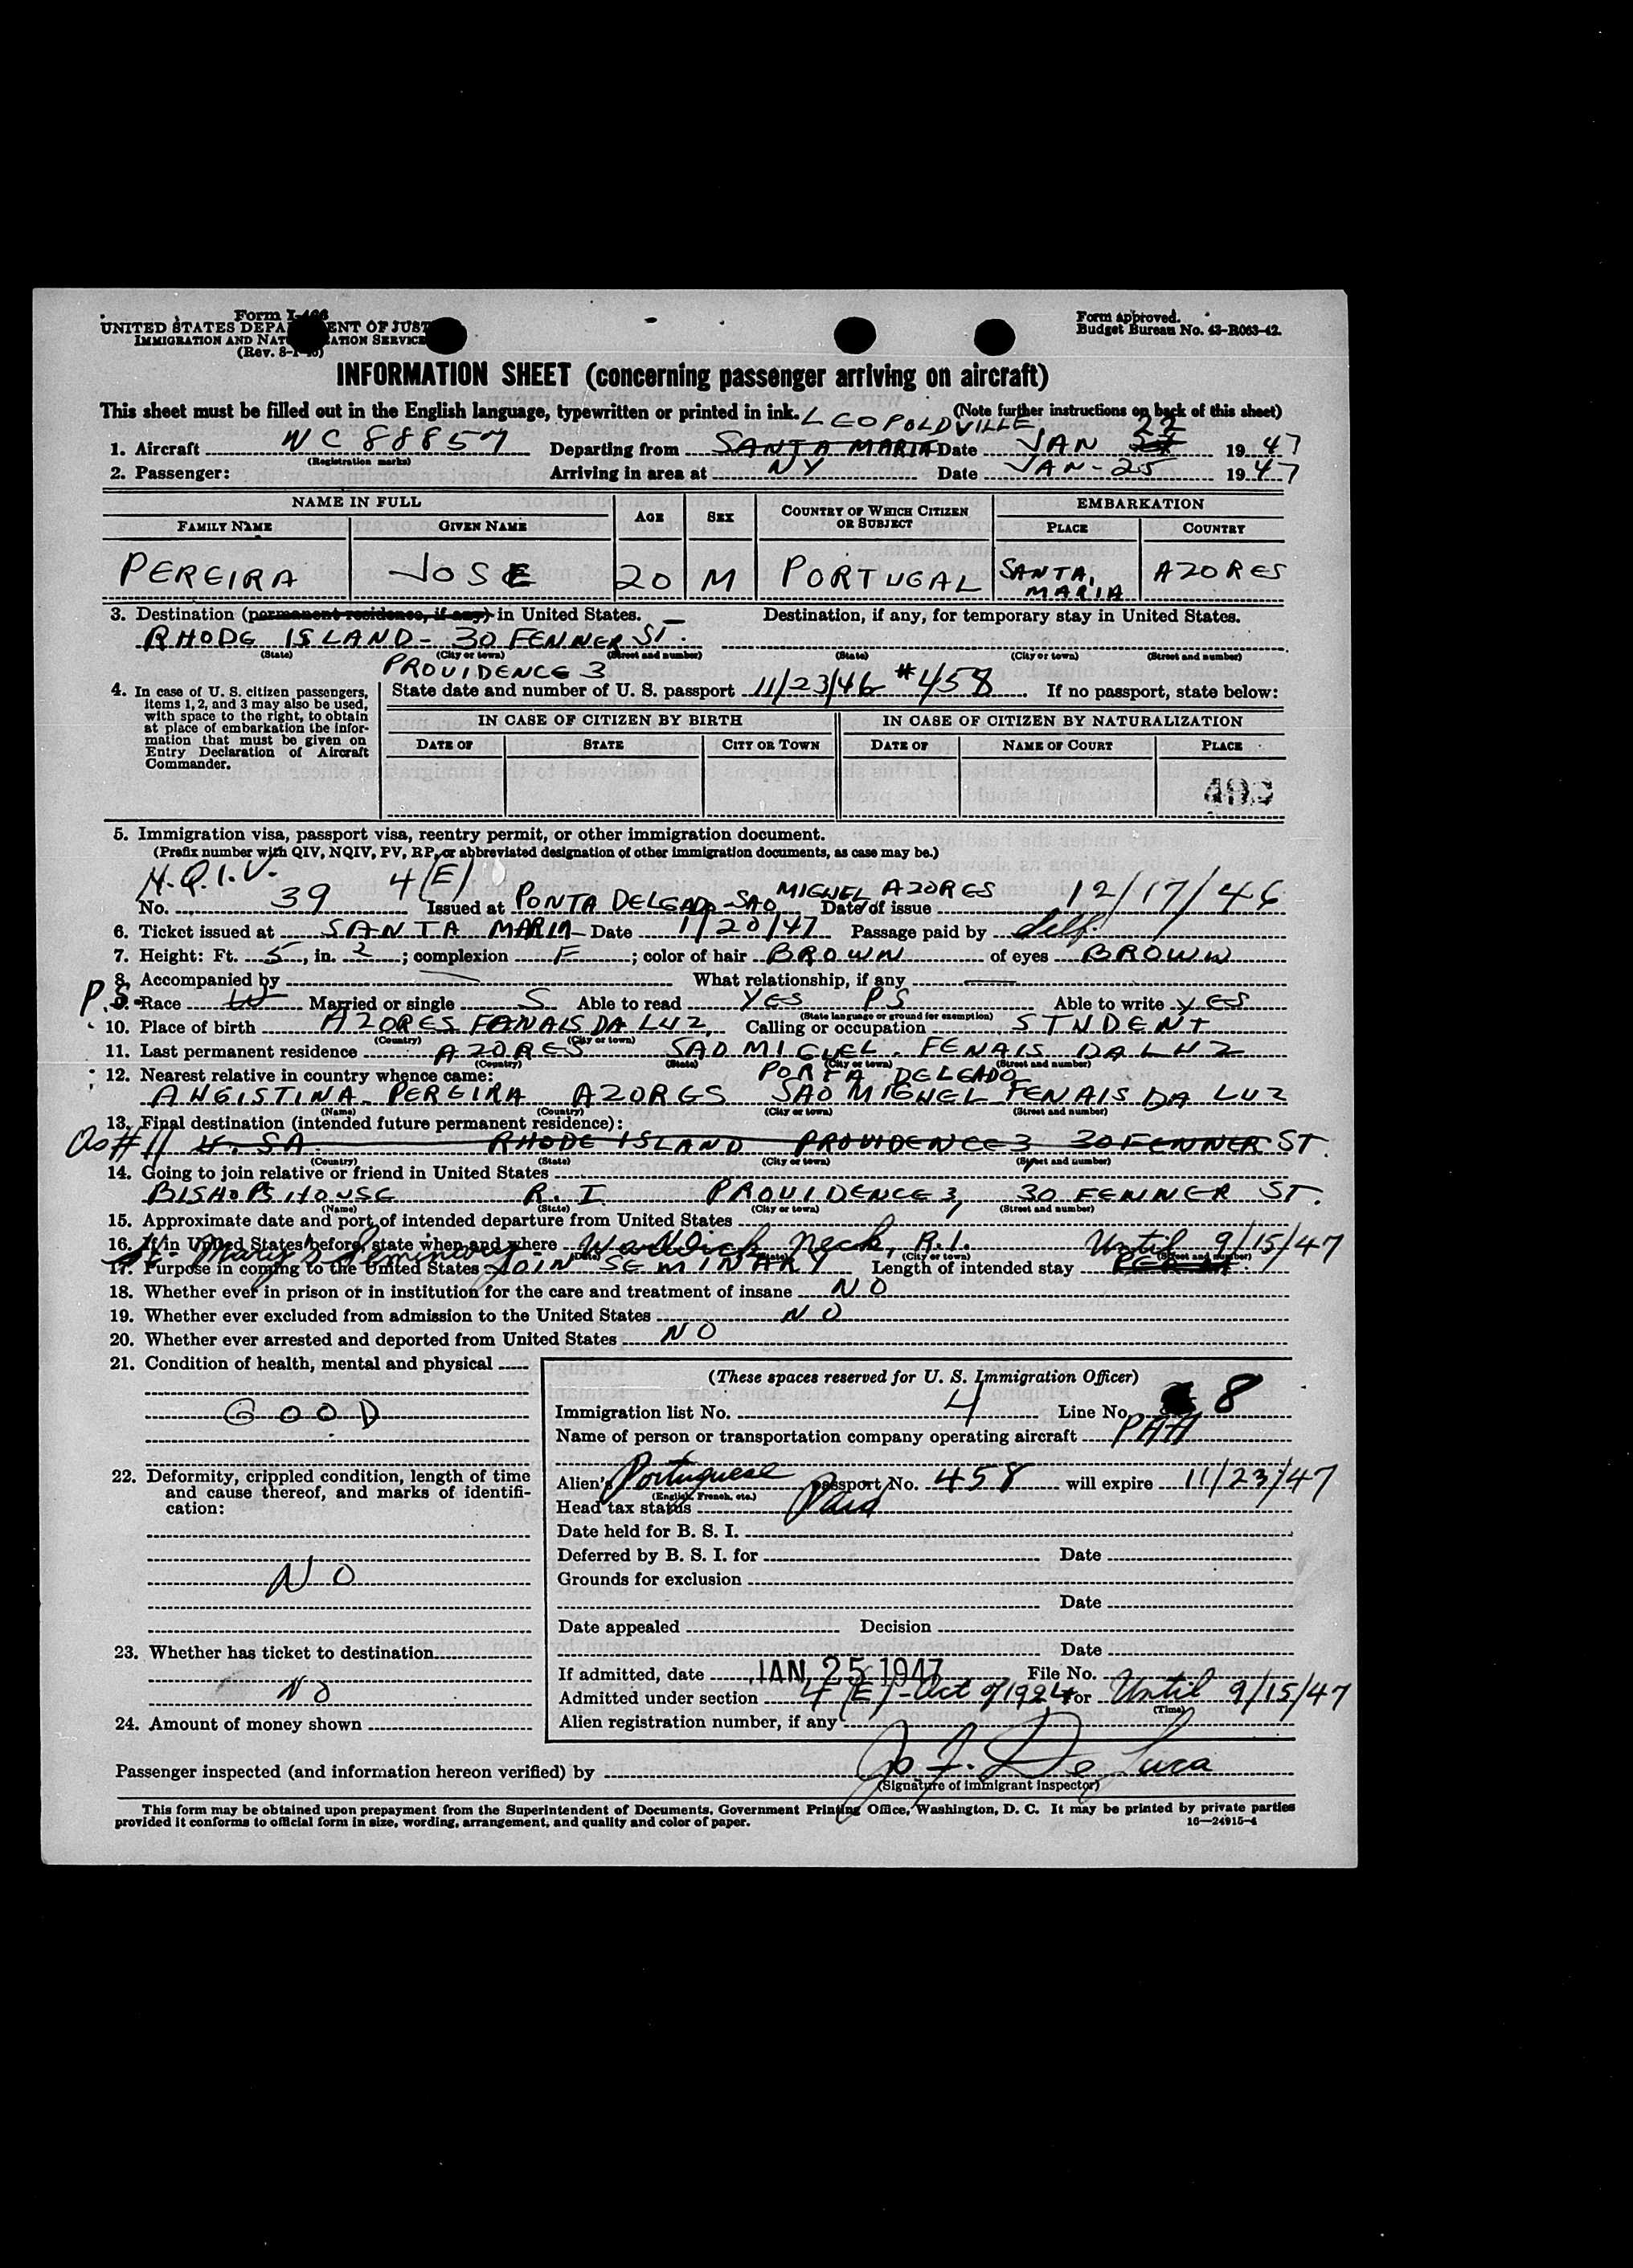 Form I-466
UNITED STATES DEPARTMENT OF JUSTICE
IMMIGRATION AND NATURALIZATION SERVICE
(Rev. 8-1-46)
Form approved.
Budget Bureau No. 43-R063-42.
INFORMATION SHEET (concerning passenger arriving on aircraft)
This sheet must be filled out in the English language, typewritten or printed in ink. (Note further instructions on back of this sheet)
LEOPOLDVILLE 22
1. Aircraft NC 88857 Departing from SANTA MARIA Date JAN 19 47
(Registration marks)
2. Passenger: Arriving in area at NY Date JAN-25 1947
NAME IN FULL AGE SEX COUNTRY OF WHICH CITIZEN OR SUBJECT EMBARKATION
FAMILY NAME GIVEN NAME PLACE COUNTRY
PEREIRA JOSE 20 M PORTUGAL SANTA MARIA AZORES
3. Destination (permanent residence, if any) in United States. Destination, if any, for temporary stay in United States.
RHODE ISLAND - 30 FENNER ST.
(State) (City or town) (Street and number) (State) (City or town) (Street and number)
PROVIDENCE 3
4. In case of U. S. citizen passengers, items 1, 2, and 3 may also be used, with space to the right, to obtain at place of embarkation the information that must be given on Entry Declaration of Aircraft Commander.
State date and number of U. S. passport 11/23/46 #458 If no passport, state below:
IN CASE OF CITIZEN BY BIRTH IN CASE OF CITIZEN BY NATURALIZATION
DATE OF STATE CITY OR TOWN DATE OF NAME OF COURT PLACE
5. Immigration visa, passport visa, reentry permit, or other immigration document.
(Prefix number with QIV, NQIV, PV, RP, or abbreviated designation of other immigration documents, as case may be.)
N.Q.I.V. 4(E) MIGUEL AZORES
No. 39 Issued at PONTA DELGADA-SAO Date of issue 12/17/46
6. Ticket issued at SANTA MARIA Date 1/20/47 Passage paid by Self
7. Height: Ft. 5, in. 2; complexion F; color of hair BROWN of eyes BROWN
8. Accompanied by What relationship, if any
P.S. 9. Race W Married or single S Able to read YES PS Able to write YES
(State language or ground for exemption)
10. Place of birth AZORES FENAIS DA LUZ Calling or occupation STNDENT
(Country) (City or town)
11. Last permanent residence AZORES SAO MIGUEL. FENAIS DA LUZ
(Country) (State) (City or town) (Street and number)
12. Nearest relative in country whence came: PORTA DELGADO
ANGISTINA PEREIRA AZORES SAO MIGUEL FENAIS DA LUZ
(Name) (Country) (City or town) (Street and number)
13. Final destination (intended future permanent residence):
As #11 U.SA. RHODE ISLAND PROVIDENCE 3 30 FENNER ST.
(Country) (State) (City or town) (Street and number)
14. Going to join relative or friend in United States
BISHOPS HOUSE R.I. PROVIDENCE 3, 30 FENNER ST.
(Name) (State) (City or town) (Street and number)
15. Approximate date and port of intended departure from United States
16. If in United States before, state when and where
St. Mary's Seminary Warwick Neck, R.I. Until 9/15/47
(Date) (State) (City or town) (Street and number)
17. Purpose in coming to the United States JOIN SEMINARY Length of intended stay
18. Whether ever in prison or in institution for the care and treatment of insane NO
19. Whether ever excluded from admission to the United States NO
20. Whether ever arrested and deported from United States NO
21. Condition of health, mental and physical
GOOD
22. Deformity, crippled condition, length of time and cause thereof, and marks of identification:
NO
23. Whether has ticket to destination
NO
24. Amount of money shown
(These spaces reserved for U. S. Immigration Officer)
Immigration list No. 4 Line No. 8
Name of person or transportation company operating aircraft PAA
Alien's Portuguese passport No. 458 will expire 11/23/47
(English, French, etc.)
Head tax status Paid
Date held for B. S. I.
Deferred by B. S. I. for Date
Grounds for exclusion
Date
Date appealed Decision
Date
If admitted, date JAN 25 1947 File No.
Admitted under section 4(E)-Act of 1924 for Until 9/15/47
(Time)
Alien registration number, if any
Passenger inspected (and information hereon verified) by J. F. De Luca
(Signature of immigrant inspector)
This form may be obtained upon prepayment from the Superintendent of Documents, Government Printing Office, Washington, D. C. It may be printed by private parties
provided it conforms to official form in size, wording, arrangement, and quality and color of paper.
16—24915-4